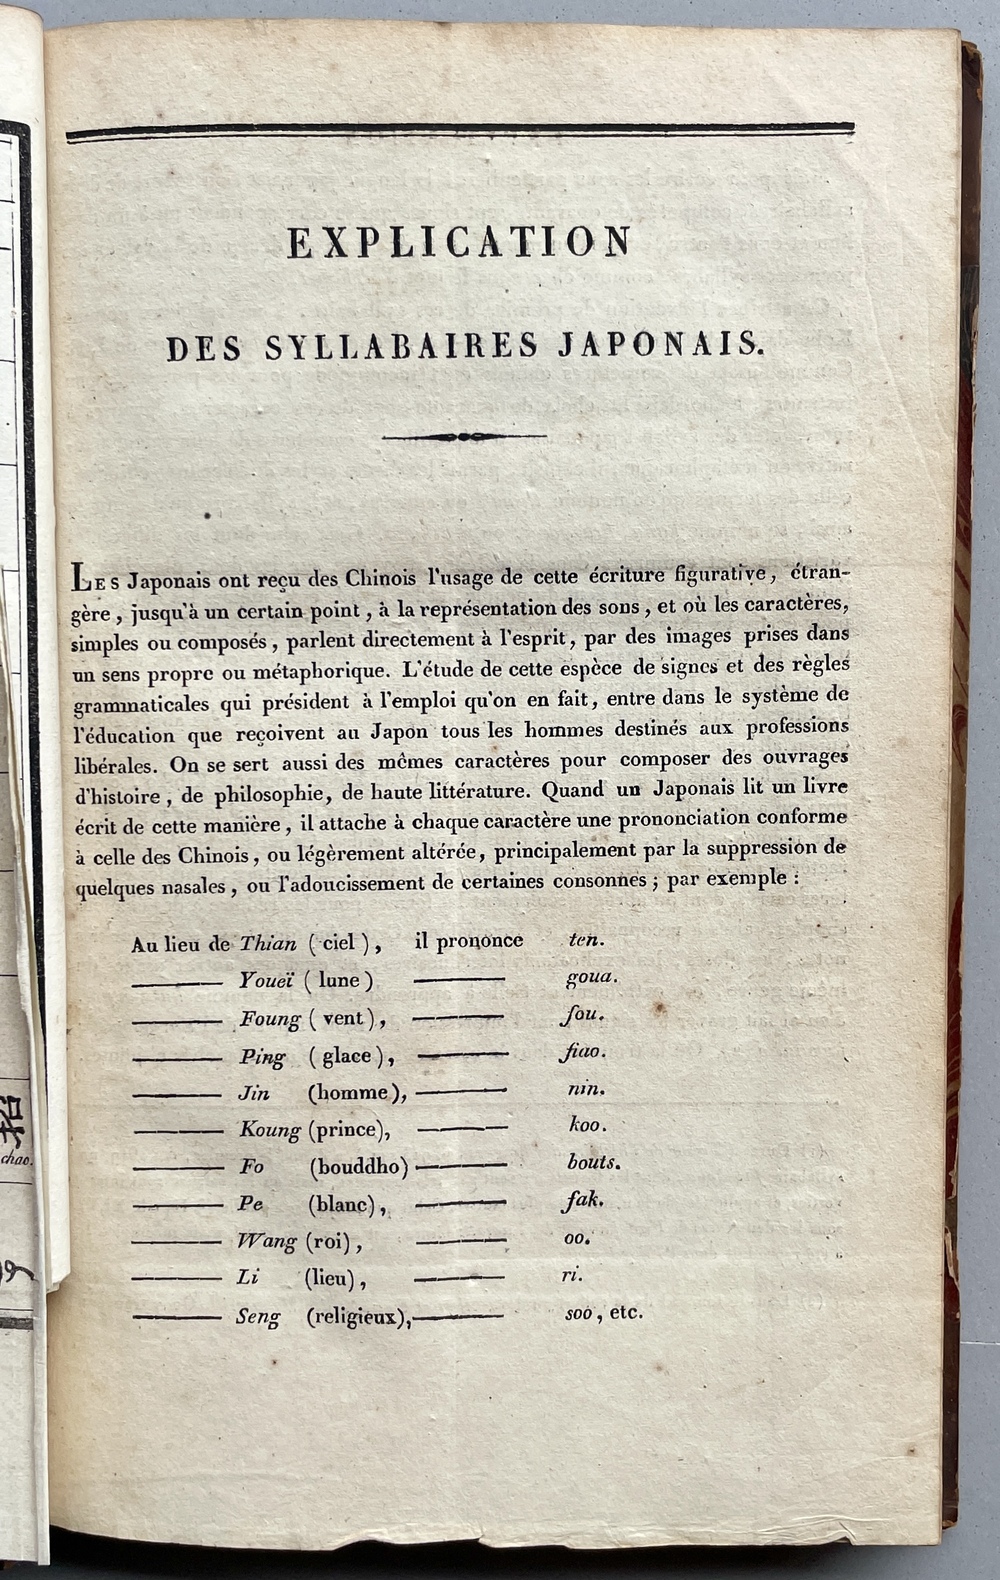 EXPLICATION
DES SYLLABAIRES JAPONAIS.
LES Japonais ont reçu des Chinois l'usage de cette écriture figurative, étran-
gère, jusqu'à un certain point, à la représentation des sons, et où les caractères,
simples ou composés, parlent directement à l'esprit, par des images prises dans
un sens propre ou métaphorique. L'étude de cette espèce de signes et des règles
grammaticales qui président à l'emploi qu'on en fait, entre dans le système de
l'éducation que reçoivent au Japon tous les hommes destinés aux professions
libérales. On se sert aussi des mêmes caractères pour composer des ouvrages
d'histoire, de philosophie, de haute littérature. Quand un Japonais lit un livre
écrit de cette manière, il attache à chaque caractère une prononciation conforme
à celle des Chinois, ou légèrement altérée, principalement par la suppression de
quelques nasales, ou l'adoucissement de certaines consonnes; par exemple :
Au lieu de Thian (ciel), il prononce ten.
——— Youeï (lune) ——— goua.
——— Foung (vent), ——— fou.
——— Ping (glace), ——— fiao.
——— Jin (homme), ——— nin.
——— Koung (prince), ——— koo.
——— Fo (bouddho) ——— bouts.
——— Pe (blanc), ——— fak.
——— Wang (roi), ——— oo.
——— Li (lieu), ——— ri.
——— Seng (religieux), ——— soo, etc.
chao.